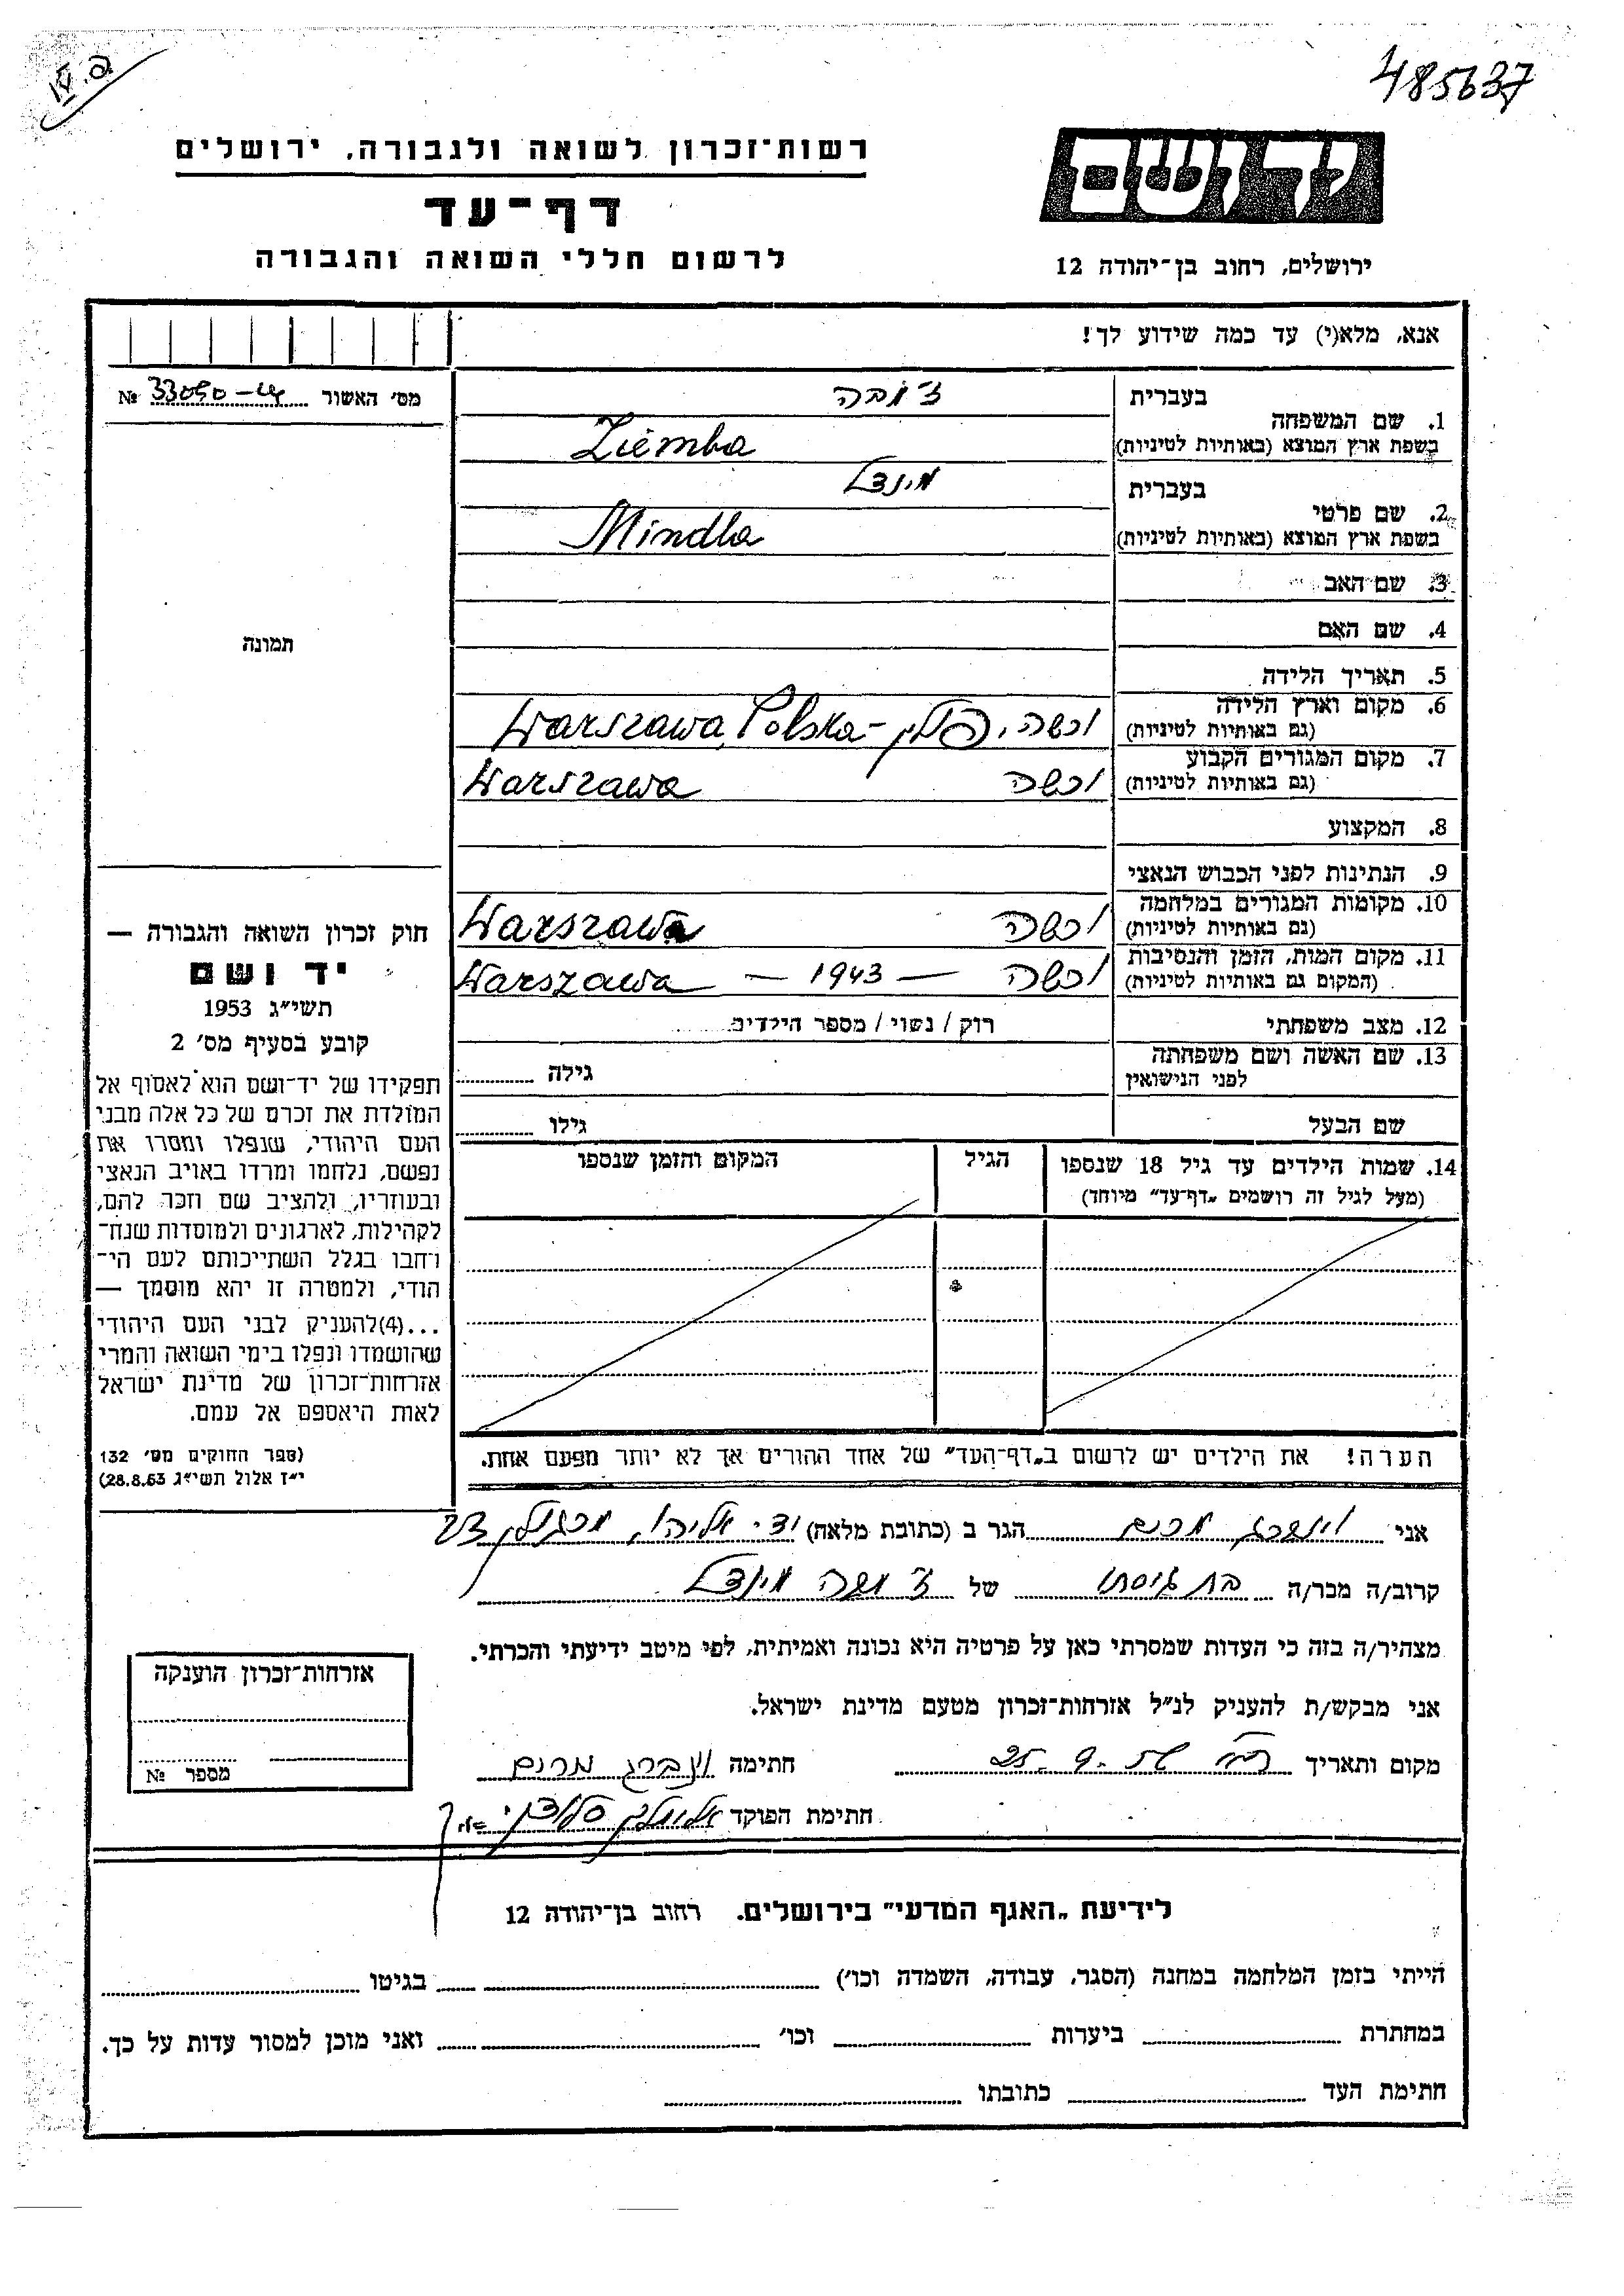 485637
יד ושם
ירושלים, רחוב בן־יהודה 12
רשות־זכרון לשואה ולגבורה, ירושלים
דף־עד
לרשום חללי השואה והגבורה
אנא, מלא(י) עד כמה שידוע לך!
1. שם המשפחה
בעברית ז'מבה
בשפת ארץ המוצא (באותיות לטיניות) Ziemba
2. שם פרטי
בעברית מינדל
בשפת ארץ המוצא (באותיות לטיניות) Mindla
3. שם האב
4. שם האם
5. תאריך הלידה
6. מקום וארץ הלידה ורשה, פולין - Warszawa, Polska
(גם באותיות לטיניות)
7. מקום המגורים הקבוע ורשה Warszawa
(גם באותיות לטיניות)
8. המקצוע
9. הנתינות לפני הכבוש הנאצי
10. מקומות המגורים במלחמה ורשה Warszawa
(גם באותיות לטיניות)
11. מקום המות, הזמן והנסיבות ורשה — 1943 — Warszawa
(המקום גם באותיות לטיניות)
12. מצב משפחתי רוק / נשוי / מספר הילדים
13. שם האשה ושם משפחתה
לפני הנישואין גילה
שם הבעל גילו
14. שמות הילדים עד גיל 18 שנספו הגיל המקום והזמן שנספו
(מעל לגיל זה רושמים „דף־עד" מיוחד)
הערה! את הילדים יש לרשום ב„דף־העד" של אחד ההורים אך לא יותר מפעם אחת.
מס' האשור №
תמונה
חוק זכרון השואה והגבורה —
יד ושם
תשי"ג 1953
קובע בסעיף מס' 2
תפקידו של יד־ושם הוא לאסוף אל
המולדת את זכרם של כל אלה מבני
העם היהודי, שנפלו ומסרו את
נפשם, נלחמו ומרדו באויב הנאצי
ובעוזריו, ולהציב שם וזכר להם,
לקהילות, לארגונים ולמוסדות שנח־
רחבו בגלל השתייכותם לעם הי־
הודי, ולמטרה זו יהא מוסמך —
...(4)להעניק לבני העם היהודי
שהושמדו ונפלו בימי השואה והמרי
אזרחות־זכרון של מדינת ישראל
לאות היאספם אל עמם.
(ספר החוקים מס' 132
י"ז אלול תשי"ג 28.8.53)
אני וינברג מרים הגר ב (כתובת מלאה) יד אליהו,
קרוב/ה מכר/ה בת גיסתו של ז'מבה מינדל
מצהיר/ה בזה כי העדות שמסרתי כאן על פרטיה היא נכונה ואמיתית, לפי מיטב ידיעתי והכרתי.
אני מבקש/ת להעניק לנ"ל אזרחות־זכרון מטעם מדינת ישראל.
מקום ותאריך 25.9. חתימה וינברג מרים
חתימת הפוקד
אזרחות־זכרון הוענקה
מספר №
לידיעת „האגף המדעי" בירושלים. רחוב בן־יהודה 12
הייתי בזמן המלחמה במחנה (הסגר, עבודה, השמדה וכו') בגיטו
במחתרת ביערות וכו' ואני מוכן למסור עדות על כך.
חתימת העד כתובתו